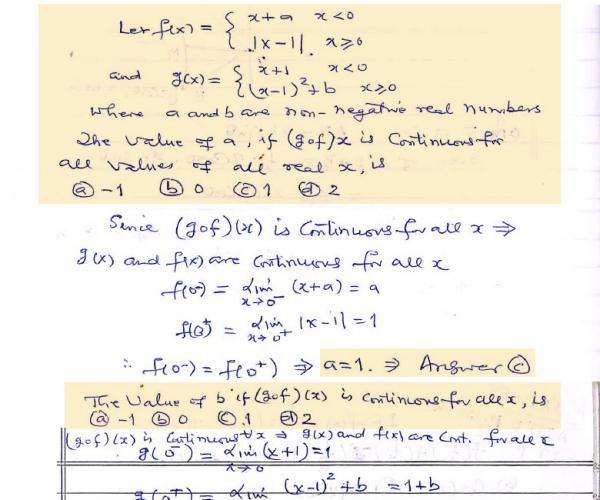 Let f(x) = { x+a x<0
|x-1|. x⩾0
and g(x) = { x+1 x<0
(x-1)²+b x⩾0
where a and b are non-negative real numbers
The value of a, if (gof)x is Continuous for
all values of all real x, is
ⓐ -1 ⓑ 0 ⓒ 1 ⓓ 2
Since (gof)(x) is Continuous for all x ⇒
g(x) and f(x) are Continuous for all x
f(0⁻) = Lim x→0⁻ (x+a) = a
f(0⁺) = Lim x→0⁺ |x-1| = 1
∴ f(0⁻) = f(0⁺) ⇒ a=1. ⇒ Answer ⓒ
The Value of b if (gof)(x) is continuous for all x, is
ⓐ -1 ⓑ 0 ⓒ 1 ⓓ 2
(gof)(x) is Continuous ∀x ⇒ g(x) and f(x) are Cont. for all x
g(0⁻) = Lim x→0 (x+1) = 1
g(0⁺) = Lim (x-1)²+b = 1+b